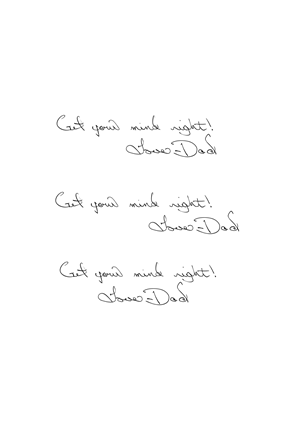 Get your mind right!
Love-Dad
Get your mind right!
Love-Dad
Get your mind right!
Love-Dad